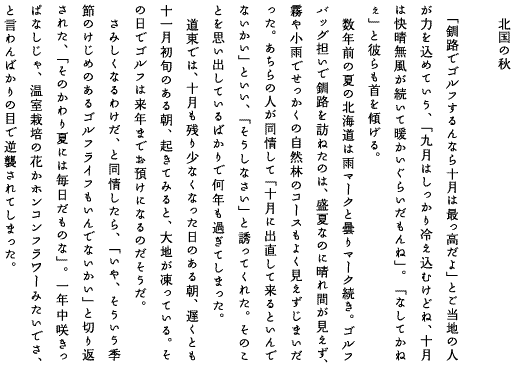 北国の秋
「釧路でゴルフするんなら十月は最っ高だよ」とご当地の人
が力を込めていう、「九月はしっかり冷え込むけどね、十月
は快晴無風が続いて暖かいぐらいだもんね」。「なしてかね
ぇ」と彼らも首を傾げる。
数年前の夏の北海道は雨マークと曇りマーク続き。ゴルフ
バッグ担いで釧路を訪ねたのは、盛夏なのに晴れ間が見えず、
霧や小雨でせっかくの自然林のコースもよく見えずじまいだ
った。あちらの人が同情して「十月に出直して来るといんで
ないかい」といい、「そうしなさい」と誘ってくれた。そのこ
とを思い出しているばかりで何年も過ぎてしまった。
道東では、十月も残り少なくなった日のある朝、遅くとも
十一月初旬のある朝、起きてみると、大地が凍っている。そ
の日でゴルフは来年までお預けになるのだそうだ。
さみしくなるわけだ、と同情したら、「いや、そういう季
節のけじめのあるゴルフライフもいんでないかい」と切り返
された、「そのかわり夏には毎日だものな」。一年中咲きっ
ぱなしじゃ、温室栽培の花かホンコンフラワーみたいでさ、
と言わんばかりの目で逆襲されてしまった。